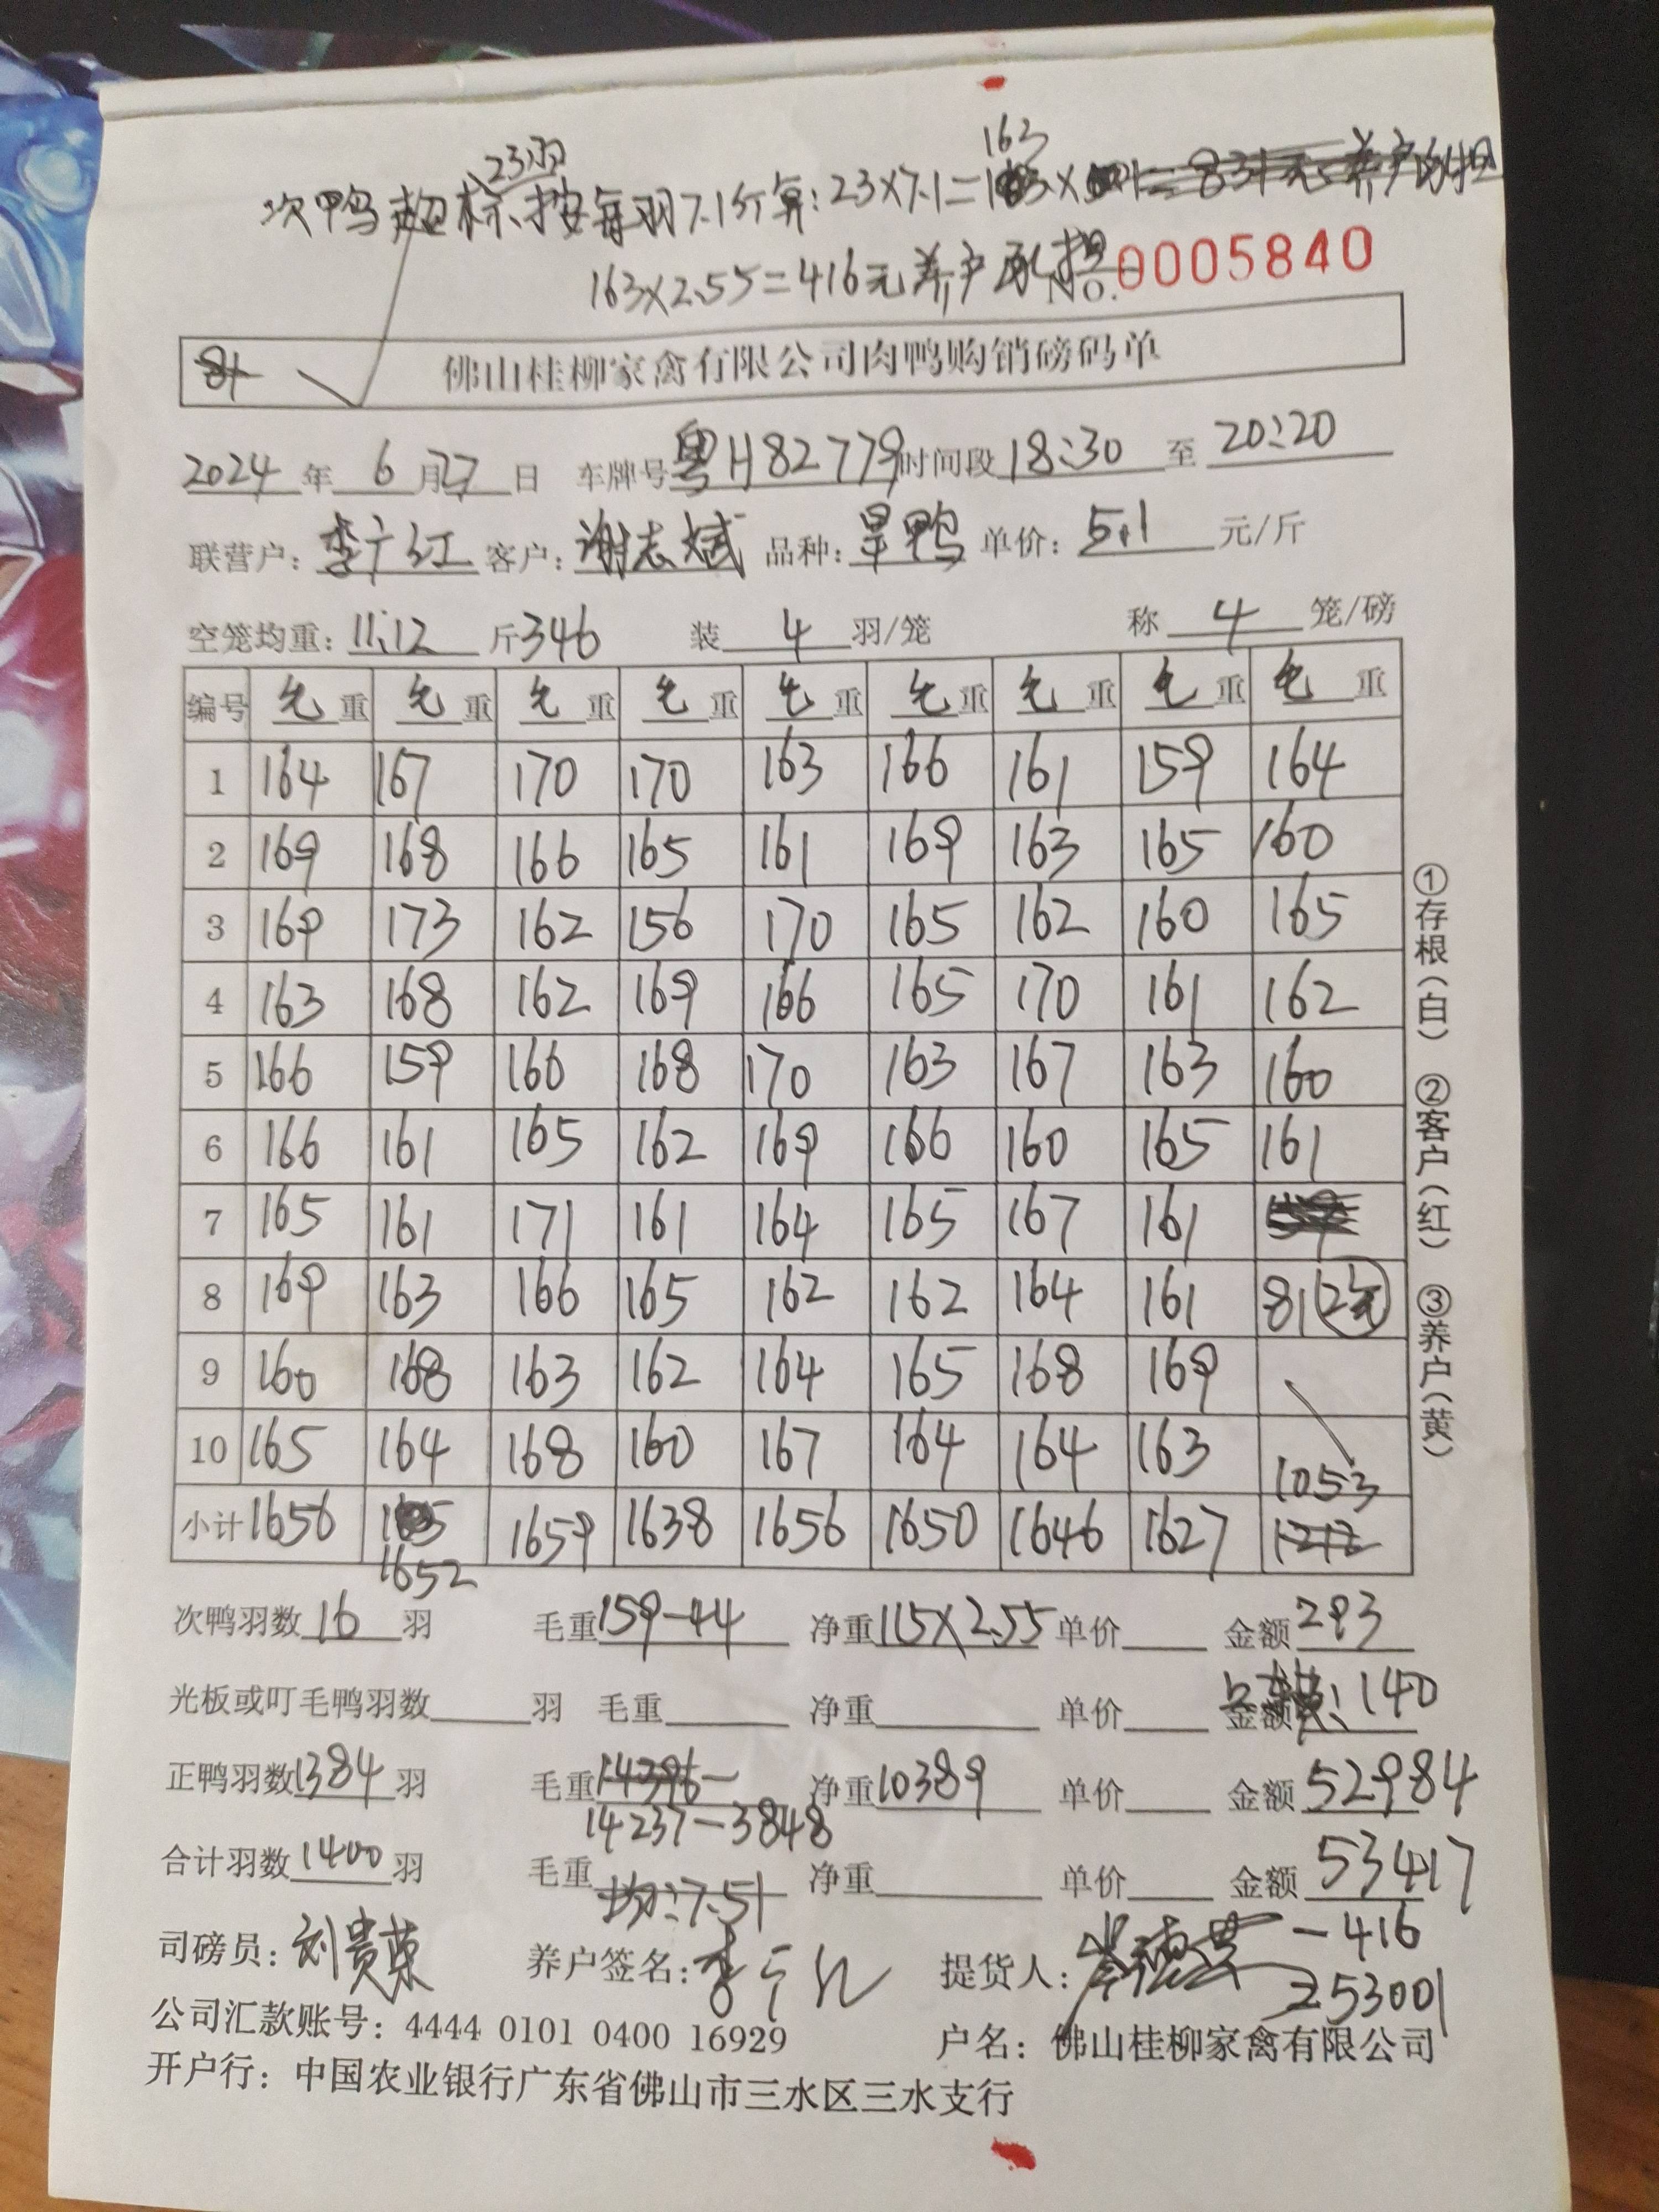 23羽 163
次鸭超标、按每羽7.1斤算:23×7.1=
163×2.55=416元养户承担
No.0005840
佛山桂柳家禽有限公司肉鸭购销磅码单
2024 年 6 月 27 日 车牌号 粤H82779 时间段 18:30 至 20:20
联营户: 李广红 客户: 谢志斌 品种: 旱鸭 单价: 5.1 元/斤
空笼均重: 11.12 斤 346 装 4 羽/笼 称 4 笼/磅
编号 毛重 毛重 毛重 毛重 毛重 毛重 毛重 毛重 毛重
1 164 167 170 170 163 166 161 159 164
2 169 168 166 165 161 169 163 165 160
3 169 173 162 156 170 165 162 160 165
4 163 168 162 169 166 165 170 161 162
5 166 159 166 168 170 163 167 163 160
6 166 161 165 162 169 166 160 165 161
7 165 161 171 161 164 165 167 161
8 169 163 166 165 162 162 164 161 81
9 160 168 163 162 164 165 168 169
10 165 164 168 160 167 164 164 163 1053
小计 1656 1652 1659 1638 1656 1650 1646 1627 1212
次鸭羽数 16 羽 毛重 159-44 净重 115×2.55 单价 金额 293
光板或叮毛鸭羽数 羽 毛重 净重 单价 金额 140
正鸭羽数 1384 羽 毛重 14396- 净重 10389 单价 金额 52984
14237-3848
合计羽数 1400 羽 毛重 净重 单价 金额 53417
均:7.51
-416
司磅员: 刘贵荣 养户签名: 李广红 提货人:
=53001
公司汇款账号: 4444 0101 0400 16929 户名: 佛山桂柳家禽有限公司
开户行: 中国农业银行广东省佛山市三水区三水支行
①存根(白) ②客户(红) ③养户(黄)